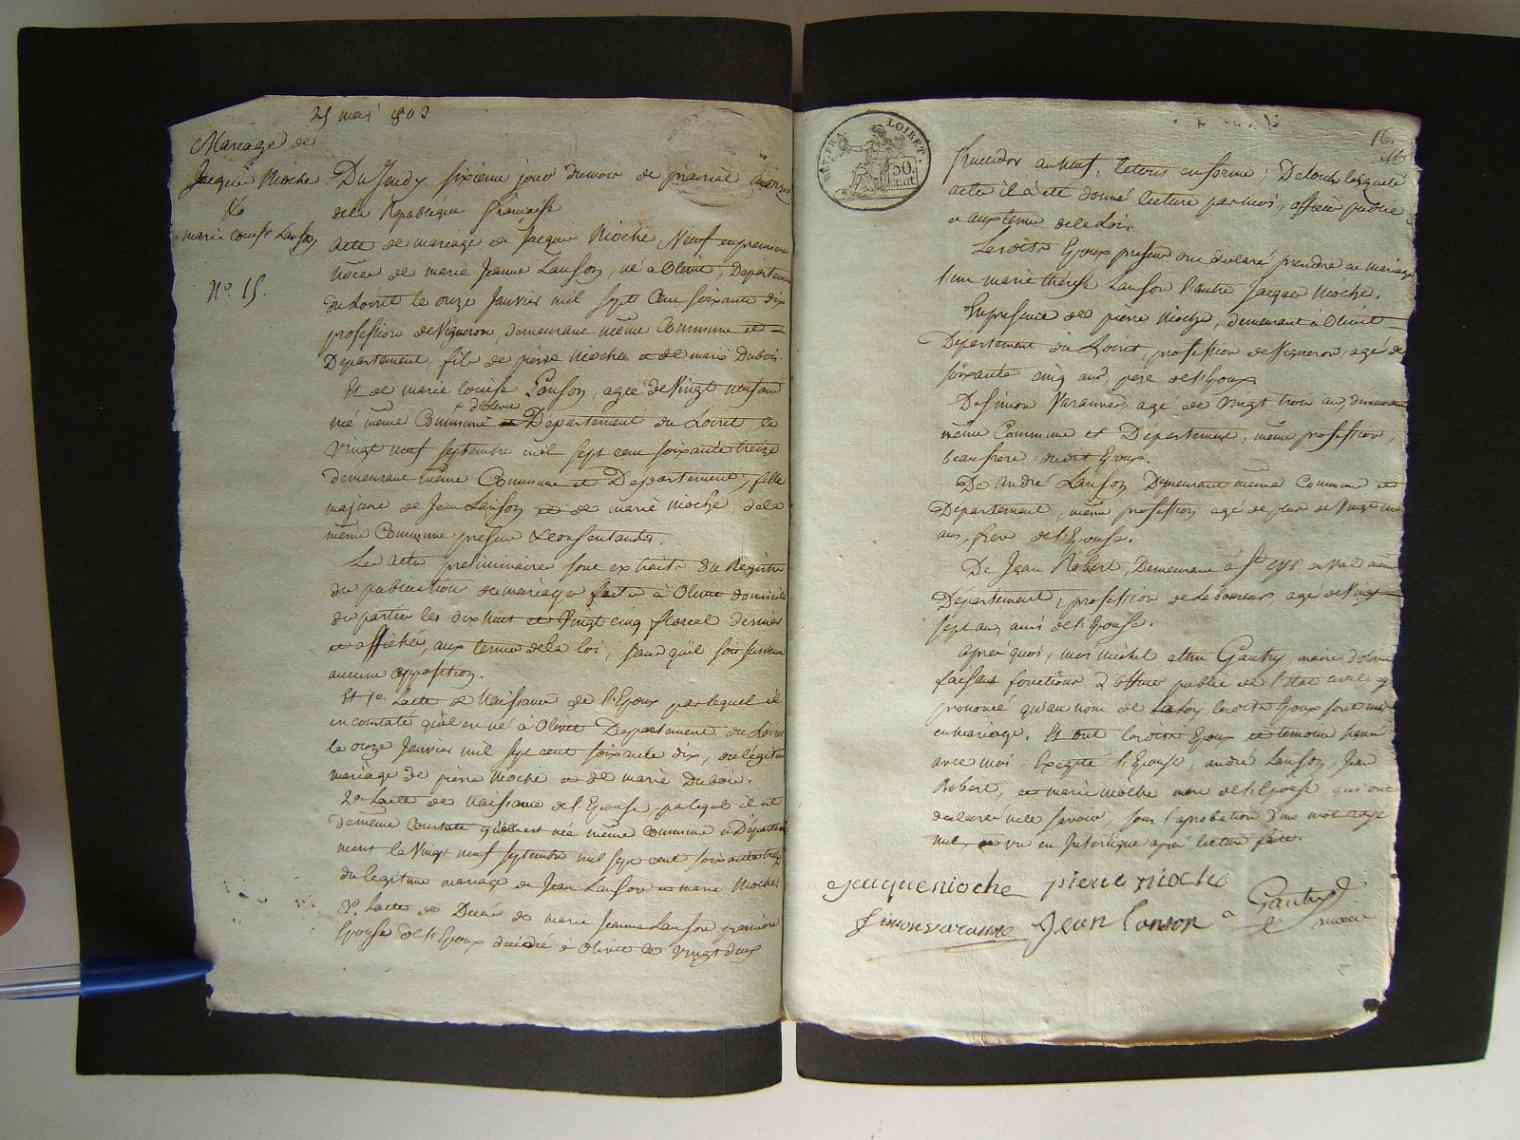 25 mai 1803
Mariage de
Jacque Nioche
&
marie Louise Lanson
No. 15.
Du Jeudy sixième jour du mois de prairial an onze
de la Republique française
acte de mariage de Jacque Nioche Veuf en première
noces de marie Jeanne Lanson, né a Olivet, Departement
du Loiret le onze Janvier mil sept cent soixante dix
profession de Vigneron, demeurant même Commune et
Departement, fils de pierre Nioche et de marie Dubois.
Et de marie Louise Lanson, agée de Vingt neuf ans
née même Commune d'Olivet Departement du Loiret le
Vingt neuf Septembre mil sept cent soixante treize
demeurant même Commune et Departement, fille
majeure de Jean Lanson et de marie Nioche, de la
même Commune present & consentandes.
Les actes preliminaires sont extraits du Registre
de publication de mariage faite à Olivet domicile
des parties les dix huit et Vingt cinq floreal dernier
et affichés, aux termes de la loi, sans qu'il soit survenu
aucune opposition.
Et 1o. L'acte de Naissance de l'Epoux par lequel il
en constaté qu'il est né à Olivet Departement du Loiret
le onze Janvier mil sept cent soixante dix, du légitime
mariage de pierre Nioche et de marie Dubois.
2o. L'acte de Naissance de l'Epouse, par lequel il est
de même constaté qu'elle est née même Commune et Departe-
ment le Vingt neuf Septembre mil sept cent soixante treize
du legitime mariage de Jean Lanson et marie Nioche
3o. L'acte de Décès de marie Jeanne Lanson première
Epouse de l'Epoux decédé à Olivet le Vingt deux
REP. FRA.
LOIRET.
50.
cent.
16.
fructidor an neuf, le tout en forme; De tous lesquels
actes il a été donné lecture par moi, officier public
et aux termes de la Loi.
Lesdits Epoux present ont declaré prendre en mariage
l'un marie thérèse Lanson l'autre Jacque Nioche.
En presence de pierre Nioche, demeurant à Olivet
Departement du Loiret, profession de Vigneron, agé de
soixante cinq ans, père de l'Epoux
De Simon Varanne, agé de Vingt trois ans, demeurant
même Commune et Departement, même profession,
beaufrère dudit Epoux.
De André Lanson Demeurant même Commune et
Departement, même profession agé de
ans, frère de l'Epouse.
De Jean Robert, Demeurant à St. même
Departement, profession de Laboureur agé de Vingt
sept ans, ami de l'Epouse.
après quoi, moi michel Gautry, maire d'olivet
faisant fonctions d'officier public de l'Etat civil ay
prononcé qu'au nom de La Loy lesdits Epoux sont unis
en mariage. Et ont lesdits Epoux et temoins signé
avec moi. Excepté l'Epouse, andré Lanson, Jean
Robert, et marie Nioche mere de l'Epouse qui ont
declaré ne le savoir, sous l'aprobation d'un mot rayé
nul, vu en Interligne après lecture faite.
Jacque nioche pierre nioche
Simon varanne Jean Lanson Gautry
maire